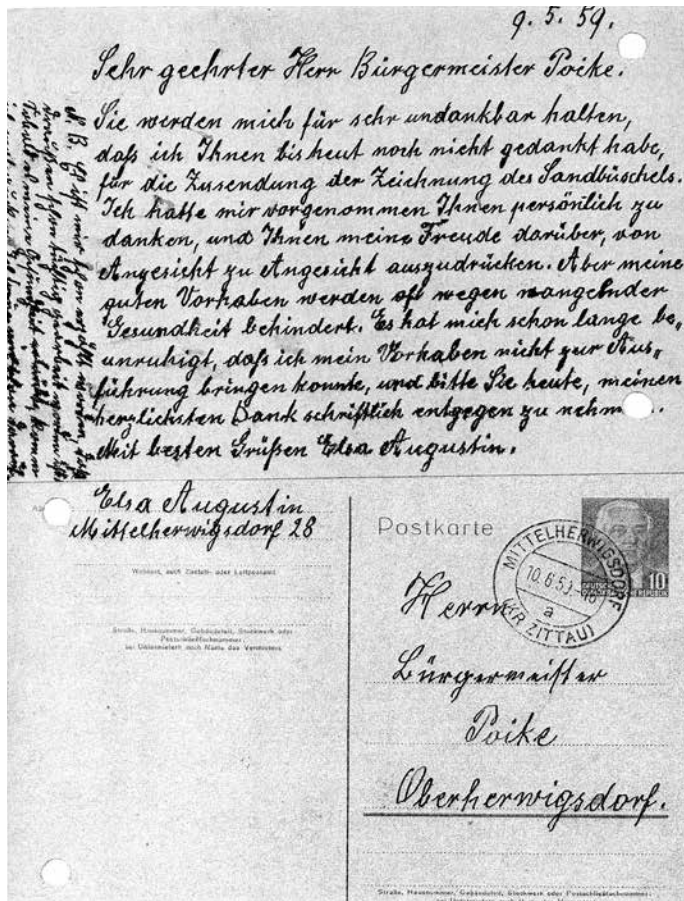 9. 5. 59.
Sehr geehrter Herr Bürgermeister Poike.
Sie werden mich für sehr undankbar halten,
daß ich Ihnen bis heut noch nicht gedankt habe,
für die Zusendung der Zeichnung des Sandbüschels.
Ich hatte mir vorgenommen Ihnen persönlich zu
danken, und Ihnen meine Freude darüber, von
Angesicht zu Angesicht auszudrücken. Aber meine
guten Vorhaben werden oft wegen mangelnder
Gesundheit behindert. Es hat mich schon lange be„
unruhigt, daß ich mein Vorhaben nicht zur Aus„
führung bringen konnte, und bitte Sie heute, meinen
herzlichsten Dank schriftlich entgegen zu nehm
Mit besten Grüßen Elsa Augustin.
N. B. Es ist mir schon erzählt worden, daß
draußen schon tüchtig gearbeitet worden ist
Elsa Augustin
Mittelherwigsdorf 28
Wohnort, auch Zustell- oder Leitpostamt
Straße, Hausnummer, Gebäudeteil, Stockwerk oder
Postschließfachnummer;
bei Untermietern auch Name des Vermieters
Postkarte
10
MITTELHERWIGSDORF
10.6.59.-18
a
(KR ZITTAU)
Herrn
Bürgermeister
Poike
Oberherwigsdorf.
Straße, Hausnummer, Gebäudeteil, Stockwerk oder Postschließfachnummer;